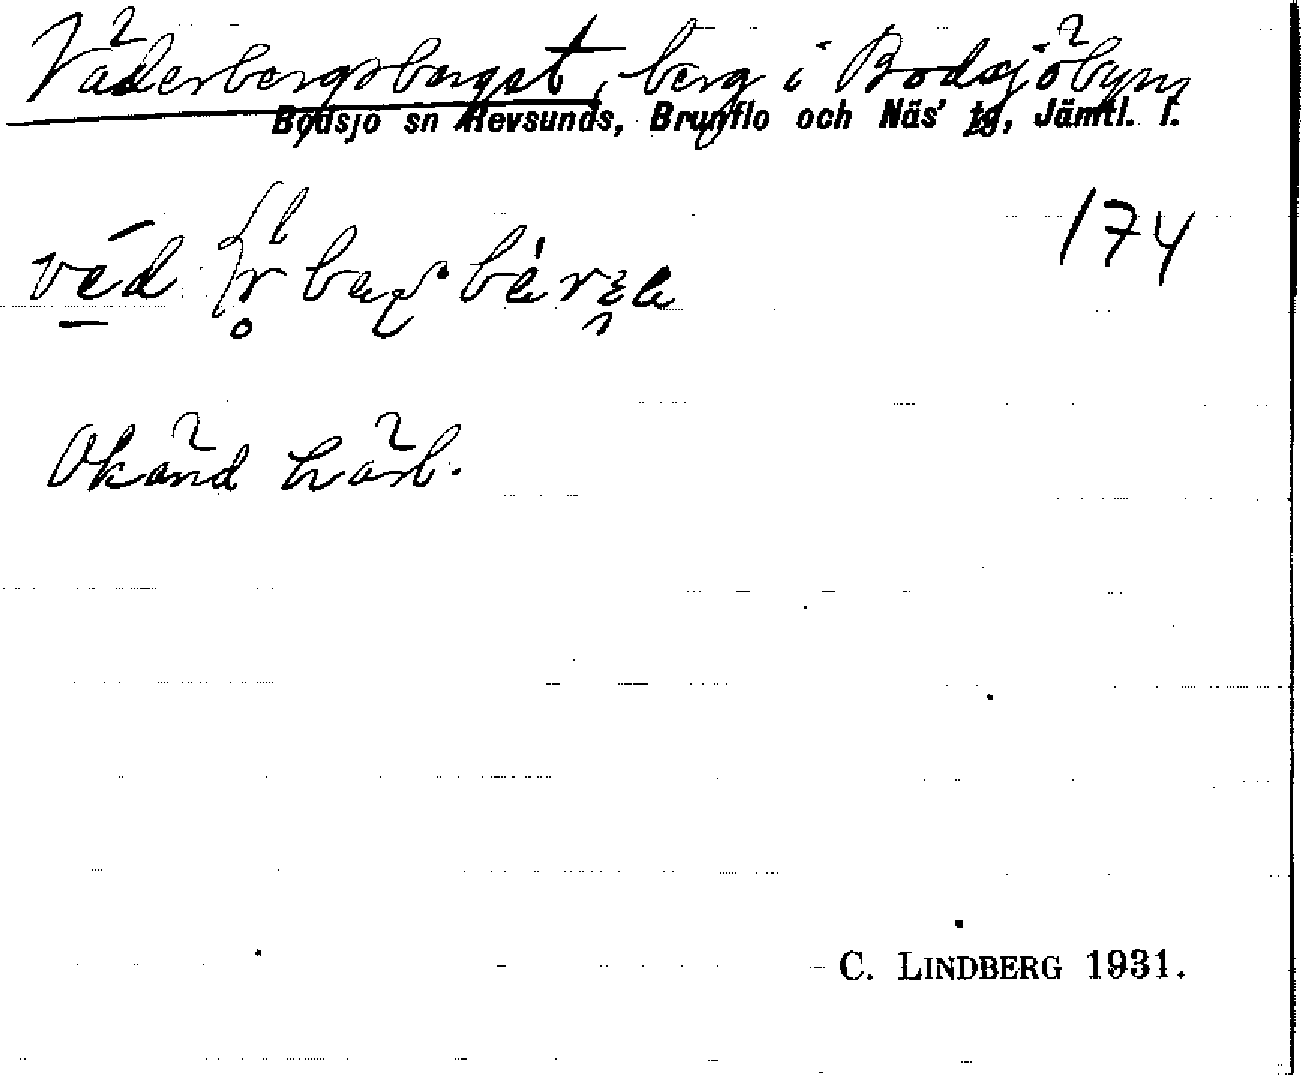 Väderbergsberget, berg i Bodsjöbyn
Bodsjö sn Revsunds, Brunflo och Näs' tg, Jämtl. l.
174
Okänd härl.
C. LINDBERG 1931.